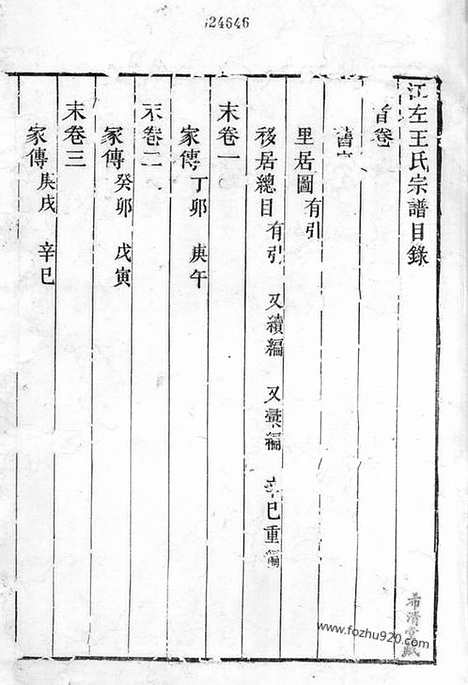 24646
江左王氏宗譜目錄
首卷
舊
里居圖 有引
移居總目 有引 又續編 又彙編 辛巳重編
末卷一
家傳 丁卯 庚午
末卷二
家傳 癸卯 戊寅
末卷三
家傳 庚戌 辛巳
www.fozhu920.com